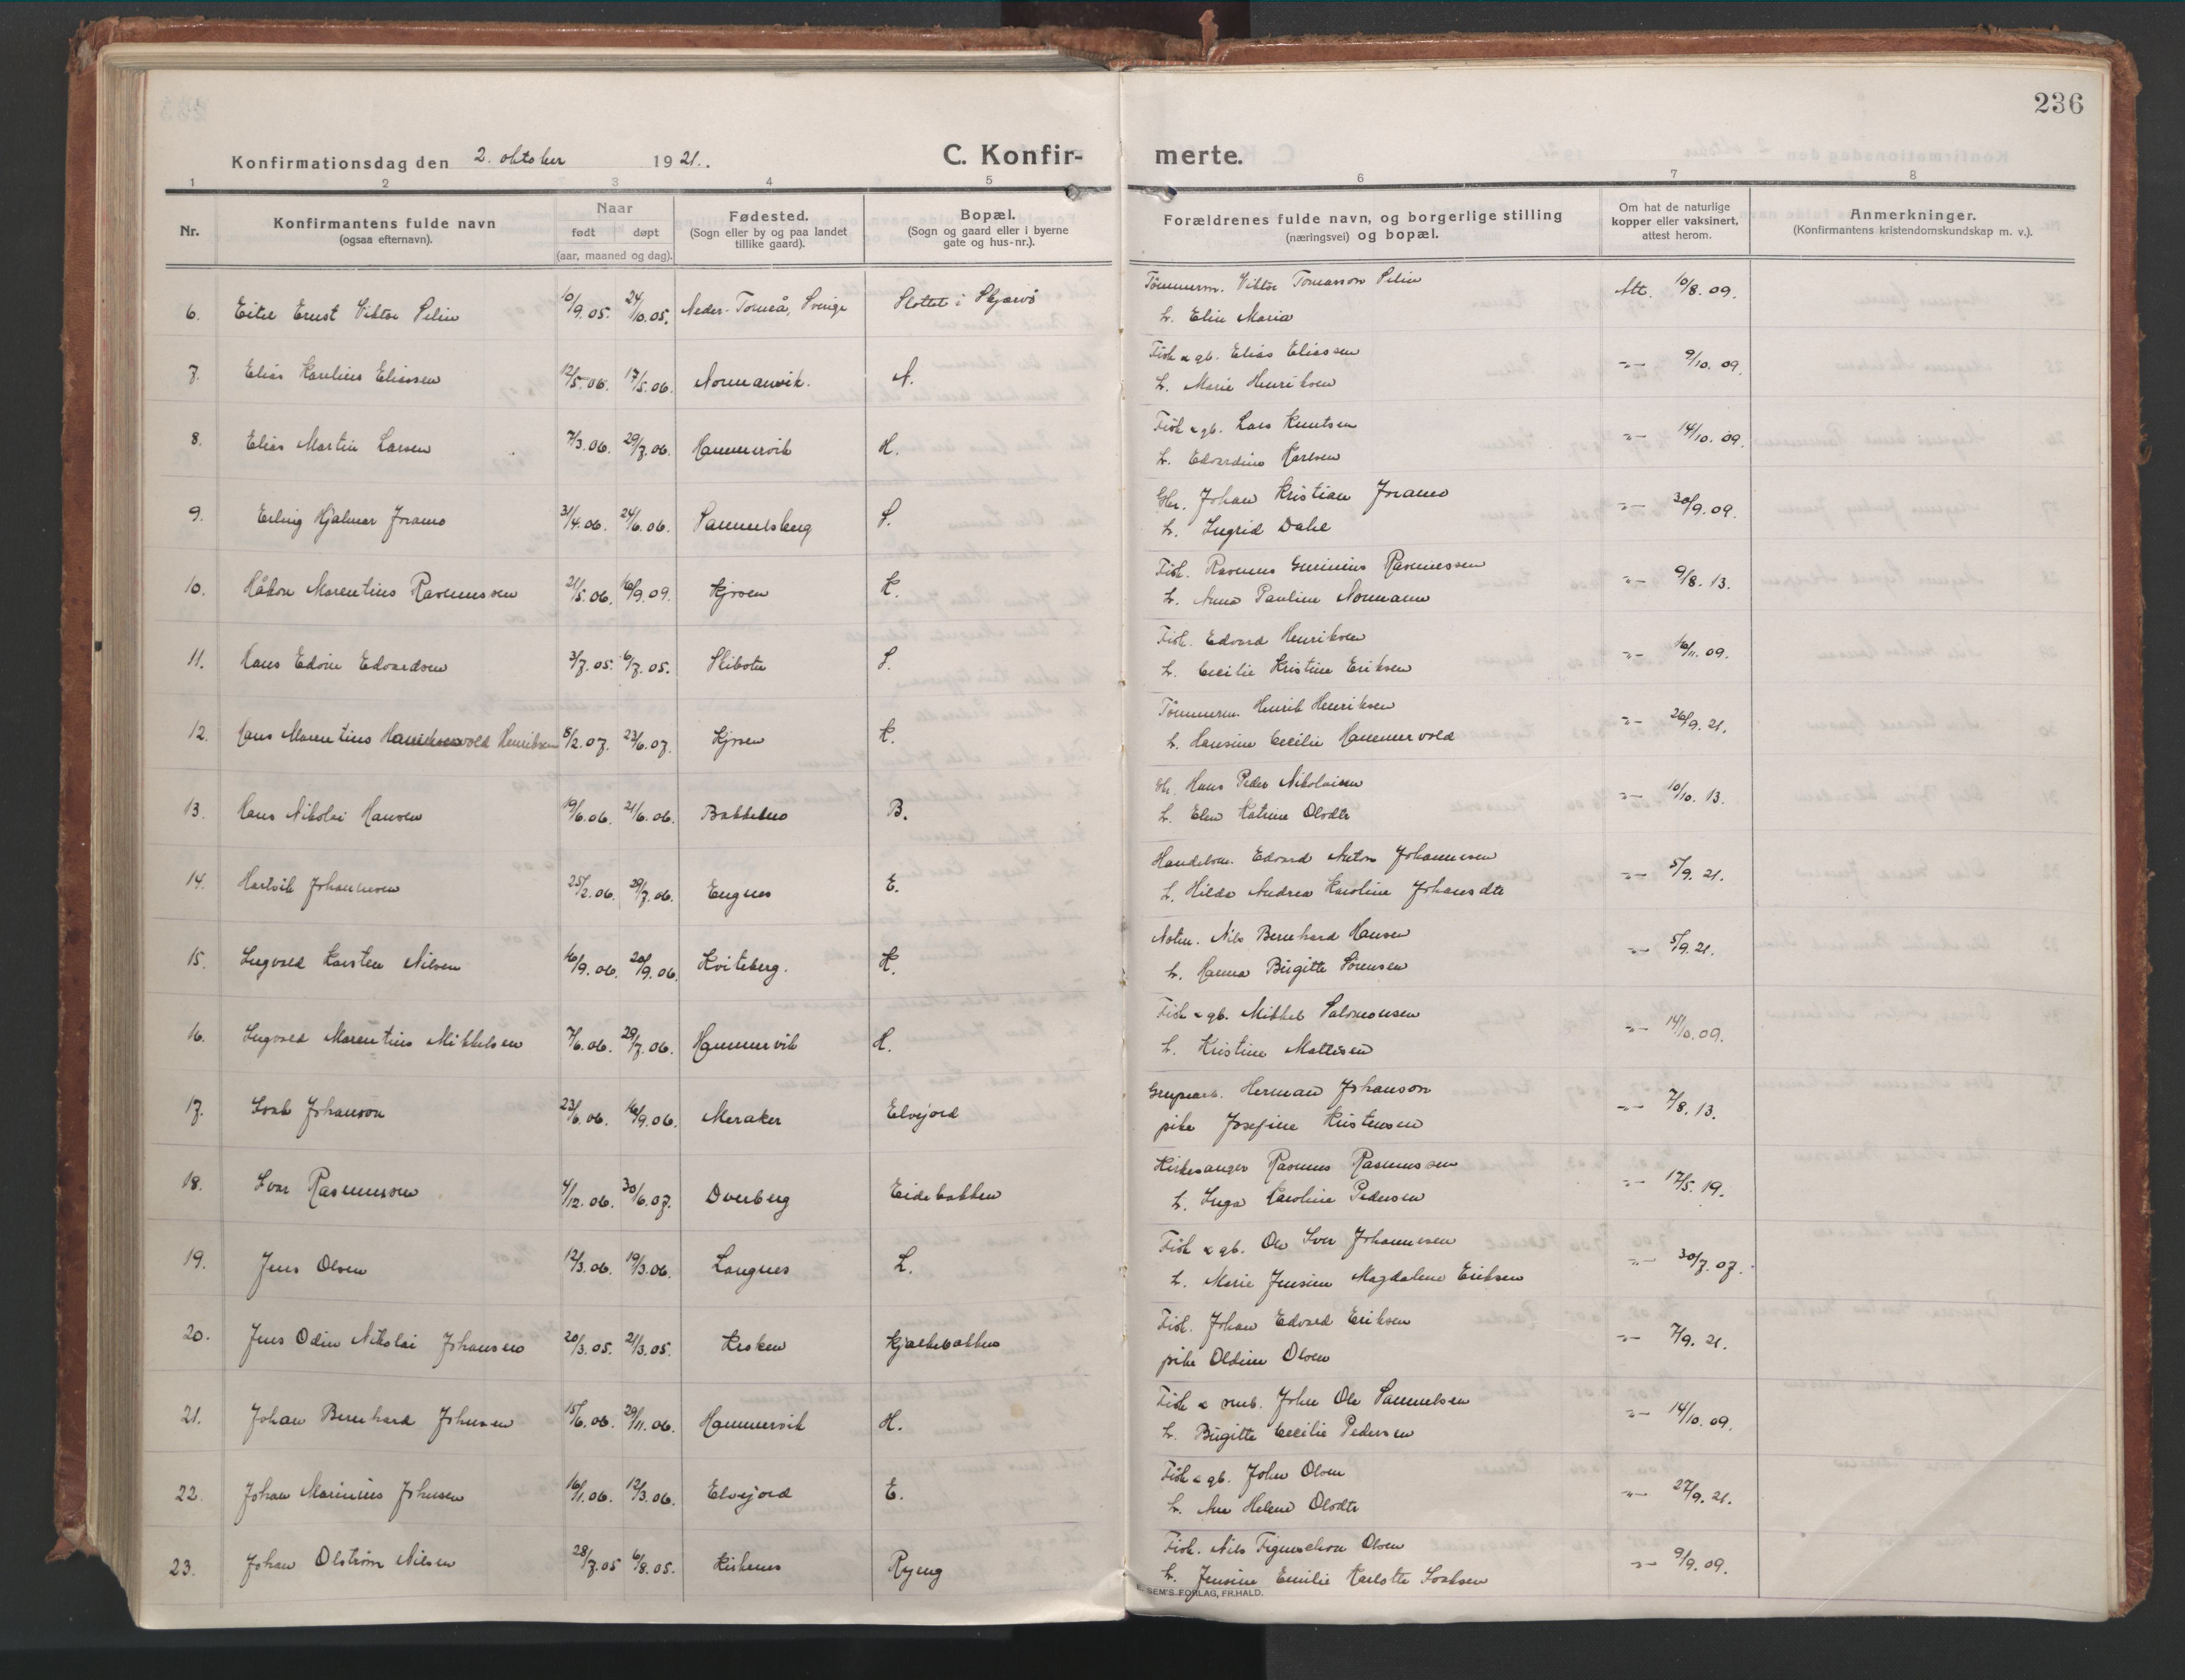 236
Konfirmationsdag den 2. oktober 1921.
C. Konfir- merte.
1 2 3 4 5 6 7 8
Nr.
Konfirmantens fulde navn
(ogsaa efternavn).
Naar
født døpt
(aar, maaned og dag).
Fødested.
(Sogn eller by og paa landet
tillike gaard).
Bopæl.
(Sogn og gaard eller i byerne
gate og hus-nr.).
Forældrenes fulde navn, og borgerlige stilling
(næringsvei) og bopæl.
Om hat de naturlige
kopper eller vaksinert,
attest herom.
Anmerkninger.
(Konfirmantens kristendomskundskap m. v.).
Tømmerm. Viktor Tomasson Selin
6. Eitel Ernst Viktor Selin 10/9.05. 24/10.05. Neder-Torneå, Sverige Slottet i Skjervø Att. 10/8.09.
h. Elin Maria
Fisk & gb. Elias Eliassen
7. Elias Karelius Eliassen 12/5.06. 17/5.06. Normanvik. N. -"- 9/10.09.
h. Marie Henriksen
Fisk & gb. Lars Knutsen
8. Elias Martin Larsen 7/3.06. 29/7.06. Hammervik H. -"- 14/10.09.
h. Edvardine Karlsen
Gbr. Johan Kristian Joramo
9. Erling Hjalmar Joramo 31/4.06. 24/6.06. Samuelsberg S. -"- 30/9.09.
h. Ingrid Dahl
Fisk. Rasmus Guninius Rasmussen
10. Håkon Marentius Rasmussen 21/5.06. 16/9.09. Kjosen K. -"- 9/8.13.
h. Anna Pauline Normann
Fisk. Edvard Henriksen
11. Hans Edvin Edvardsen 3/7.05. 6/7.05. Skibotn S. -"- 16/11.09.
h. Cecilie Kristine Eriksen
Tømmerm. Henrik Henriksen
12. Hans Marentius Hammervold Henriksen 8/2.07. 23/6.07. Kjosen K. -"- 26/9.21.
h. Hansine Cecilie Hammervold
Gbr. Hans Peder Nikolaisen
13. Hans Nikolai Hansen 19/6.06. 21/6.06. Bakkebø B. -"- 10/10.13.
h. Elen Katrine Olsdtr
Handelsm. Edvard Anton Johannesen
14. Hartvik Johannesen 25/2.06. 29/7.06. Engnes E. -"- 5/9.21.
h. Hilda Andrea Karoline Johansdtr
Notm. Nils Bernhard Hansen
15. Ingvald Karsten Nilsen 16/9.06. 20/9.06. Kviteberg. K. -"- 5/9.21.
h. Hanna Birgitte Sørensen
Fisk & gb. Mikkel Salomonsen
16. Ingvald Marentius Mikkelsen 7/6.06. 29/7.06. Hammervik H. -"- 14/10.09.
h. Kristine Mattisen
Grupearb. Herman Johanson
17. Isak Johanson 23/6.06. 16/9.06. Meraker Elvejord -"- 7/8.13.
pike Josefine Kristensen
Kirkesanger Rasmus Rasmussen
18. Ivar Rasmussen 4/12.06. 30/6.07. Dverberg Eidebakken -"- 17/5.19.
h. Inga Karoline Pedersen
Fisk & gb. Ole Iver Johannesen
19. Jens Olsen 12/3.06. 19/3.06. Langnes L. -"- 30/7.07.
h. Marie Jensine Magdalene Eriksen
Fisk. Johan Edvard Eriksen
20. Jens Odin Nikolai Johansen 20/3.05. 21/3.05. Kroken Kjækkebakken -"- 7/9.21.
pike Oldine Olsen
Fisk & smb. John Ole Samuelsen
21. Johan Bernhard Johnsen 15/6.06. 29/11.06. Hammervik H. -"- 14/10.09.
h. Birgitte Cecilie Pedersen
Fisk & gb. John Olsen
22. Johan Marinius Johnsen 16/1.06. 12/3.06. Elvejord E. -"- 27/9.21.
h. Ane Helene Olsdtr
Fisk. Nils Figenschou Olsen
23. Johan Olstrøm Nilsen 28/7.05 6/8.05. Kirkenes Ryeng -"- 9/9.09.
h. Jensine Emilie Karlotte Isaksen
E. SEM'S FORLAG, FR.HALD.